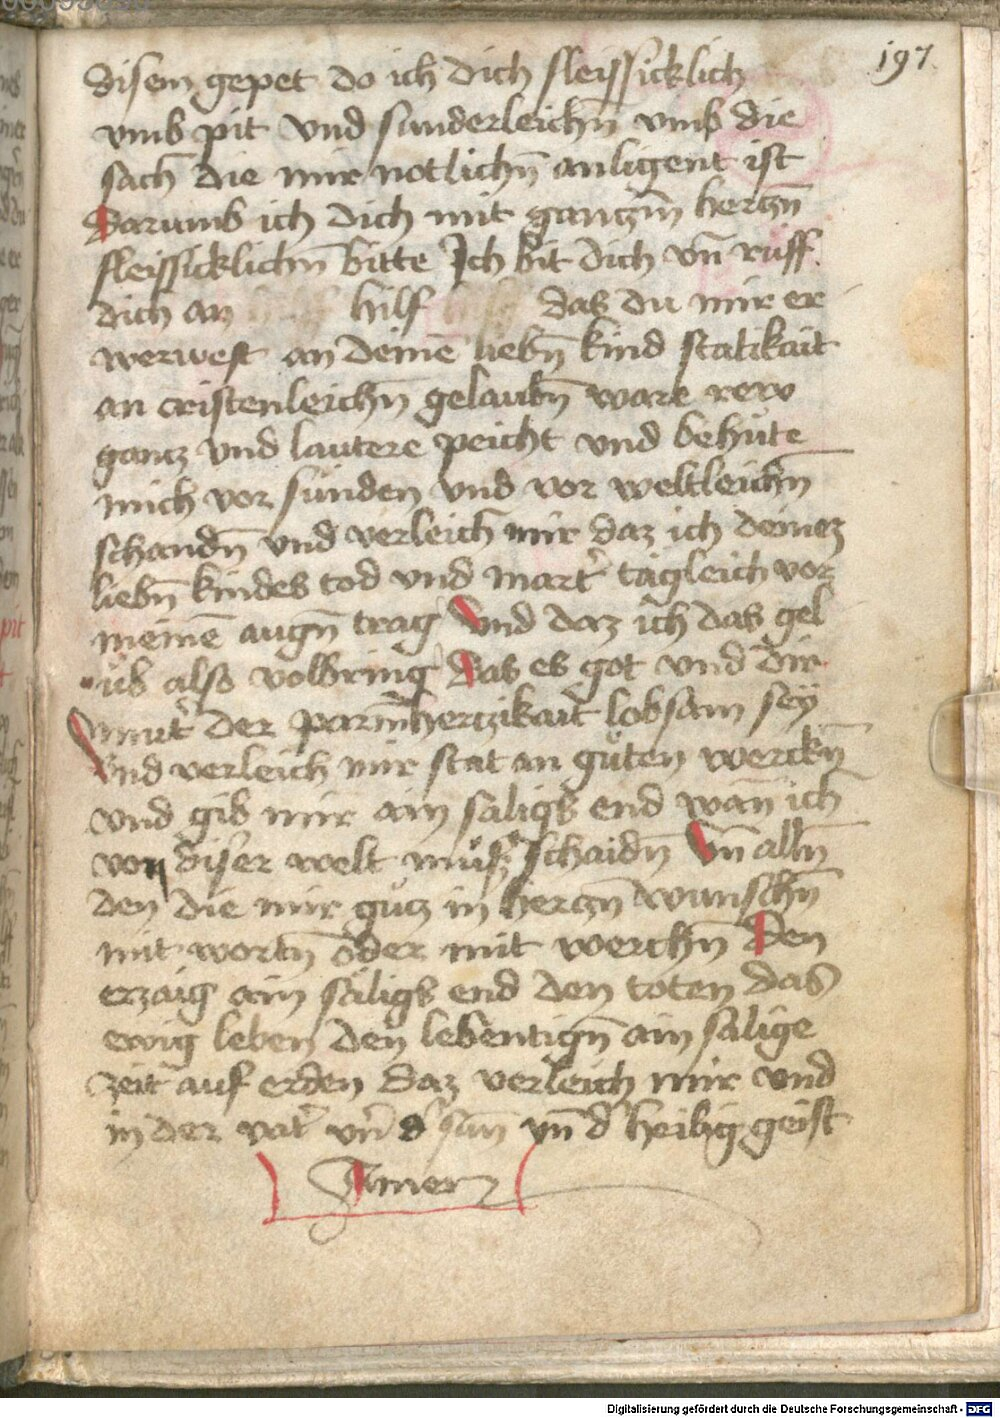 197.
disem gepet do ich dich fleissicklich
vmb pit vnd sunderleichn̄ vmb die
sach die mir notlichn̄ anligent ist
Darumb ich dich mit ganczm̄ herczn̄
fleissicklichn̄ bitte Ich bit dich vn̄ rüff
dich an hilf das du mir er
werwest an deinē liebn̄ kind statikait
an cristenleichn̄ gelaubn̄ ware rew
gancz vnd lautere peicht vnd behüte
mich vor sünden vnd vor weltleichn̄
schandn̄ vnd verleich mir daz ich deinez
liebn̄ kindes tod vnd mart̄ tägleich vor
meinē augn̄ trag Vnd daz ich das gel
üb also volbring Das es got vnd dir
mut̄ der parm̄herczikait lobsam sey
Vnd verleich mir stat an guten werckn̄
vnd gib mir ain saligs end wān ich
von diser welt müsz schaidn̄ Vn̄ alln̄
den die mir gücz in herczn̄ wunschn̄
mit wortn̄ oder mit werchn̄ Den
erzaig ain säligs end den toten das
ewig leben den lebentign̄ ain salige
zeit auf erden daz verleich mir vnd
in der vat̄ vn̄ d̄ sun vn̄ d̄ heilig geist
Amen
Digitalisierung gefördert durch die Deutsche Forschungsgemeinschaft - DFG